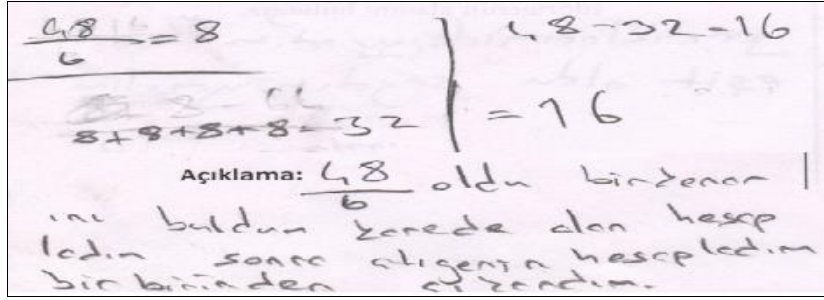 48/6 = 8
48-32=16
8+8+8+8=32
= 16
Açıklama: 48/6 oldu bir kenar
ını buldum karede alan hesap
ladım sonra altıgenin hesapladım
birbirinden çıkardım.